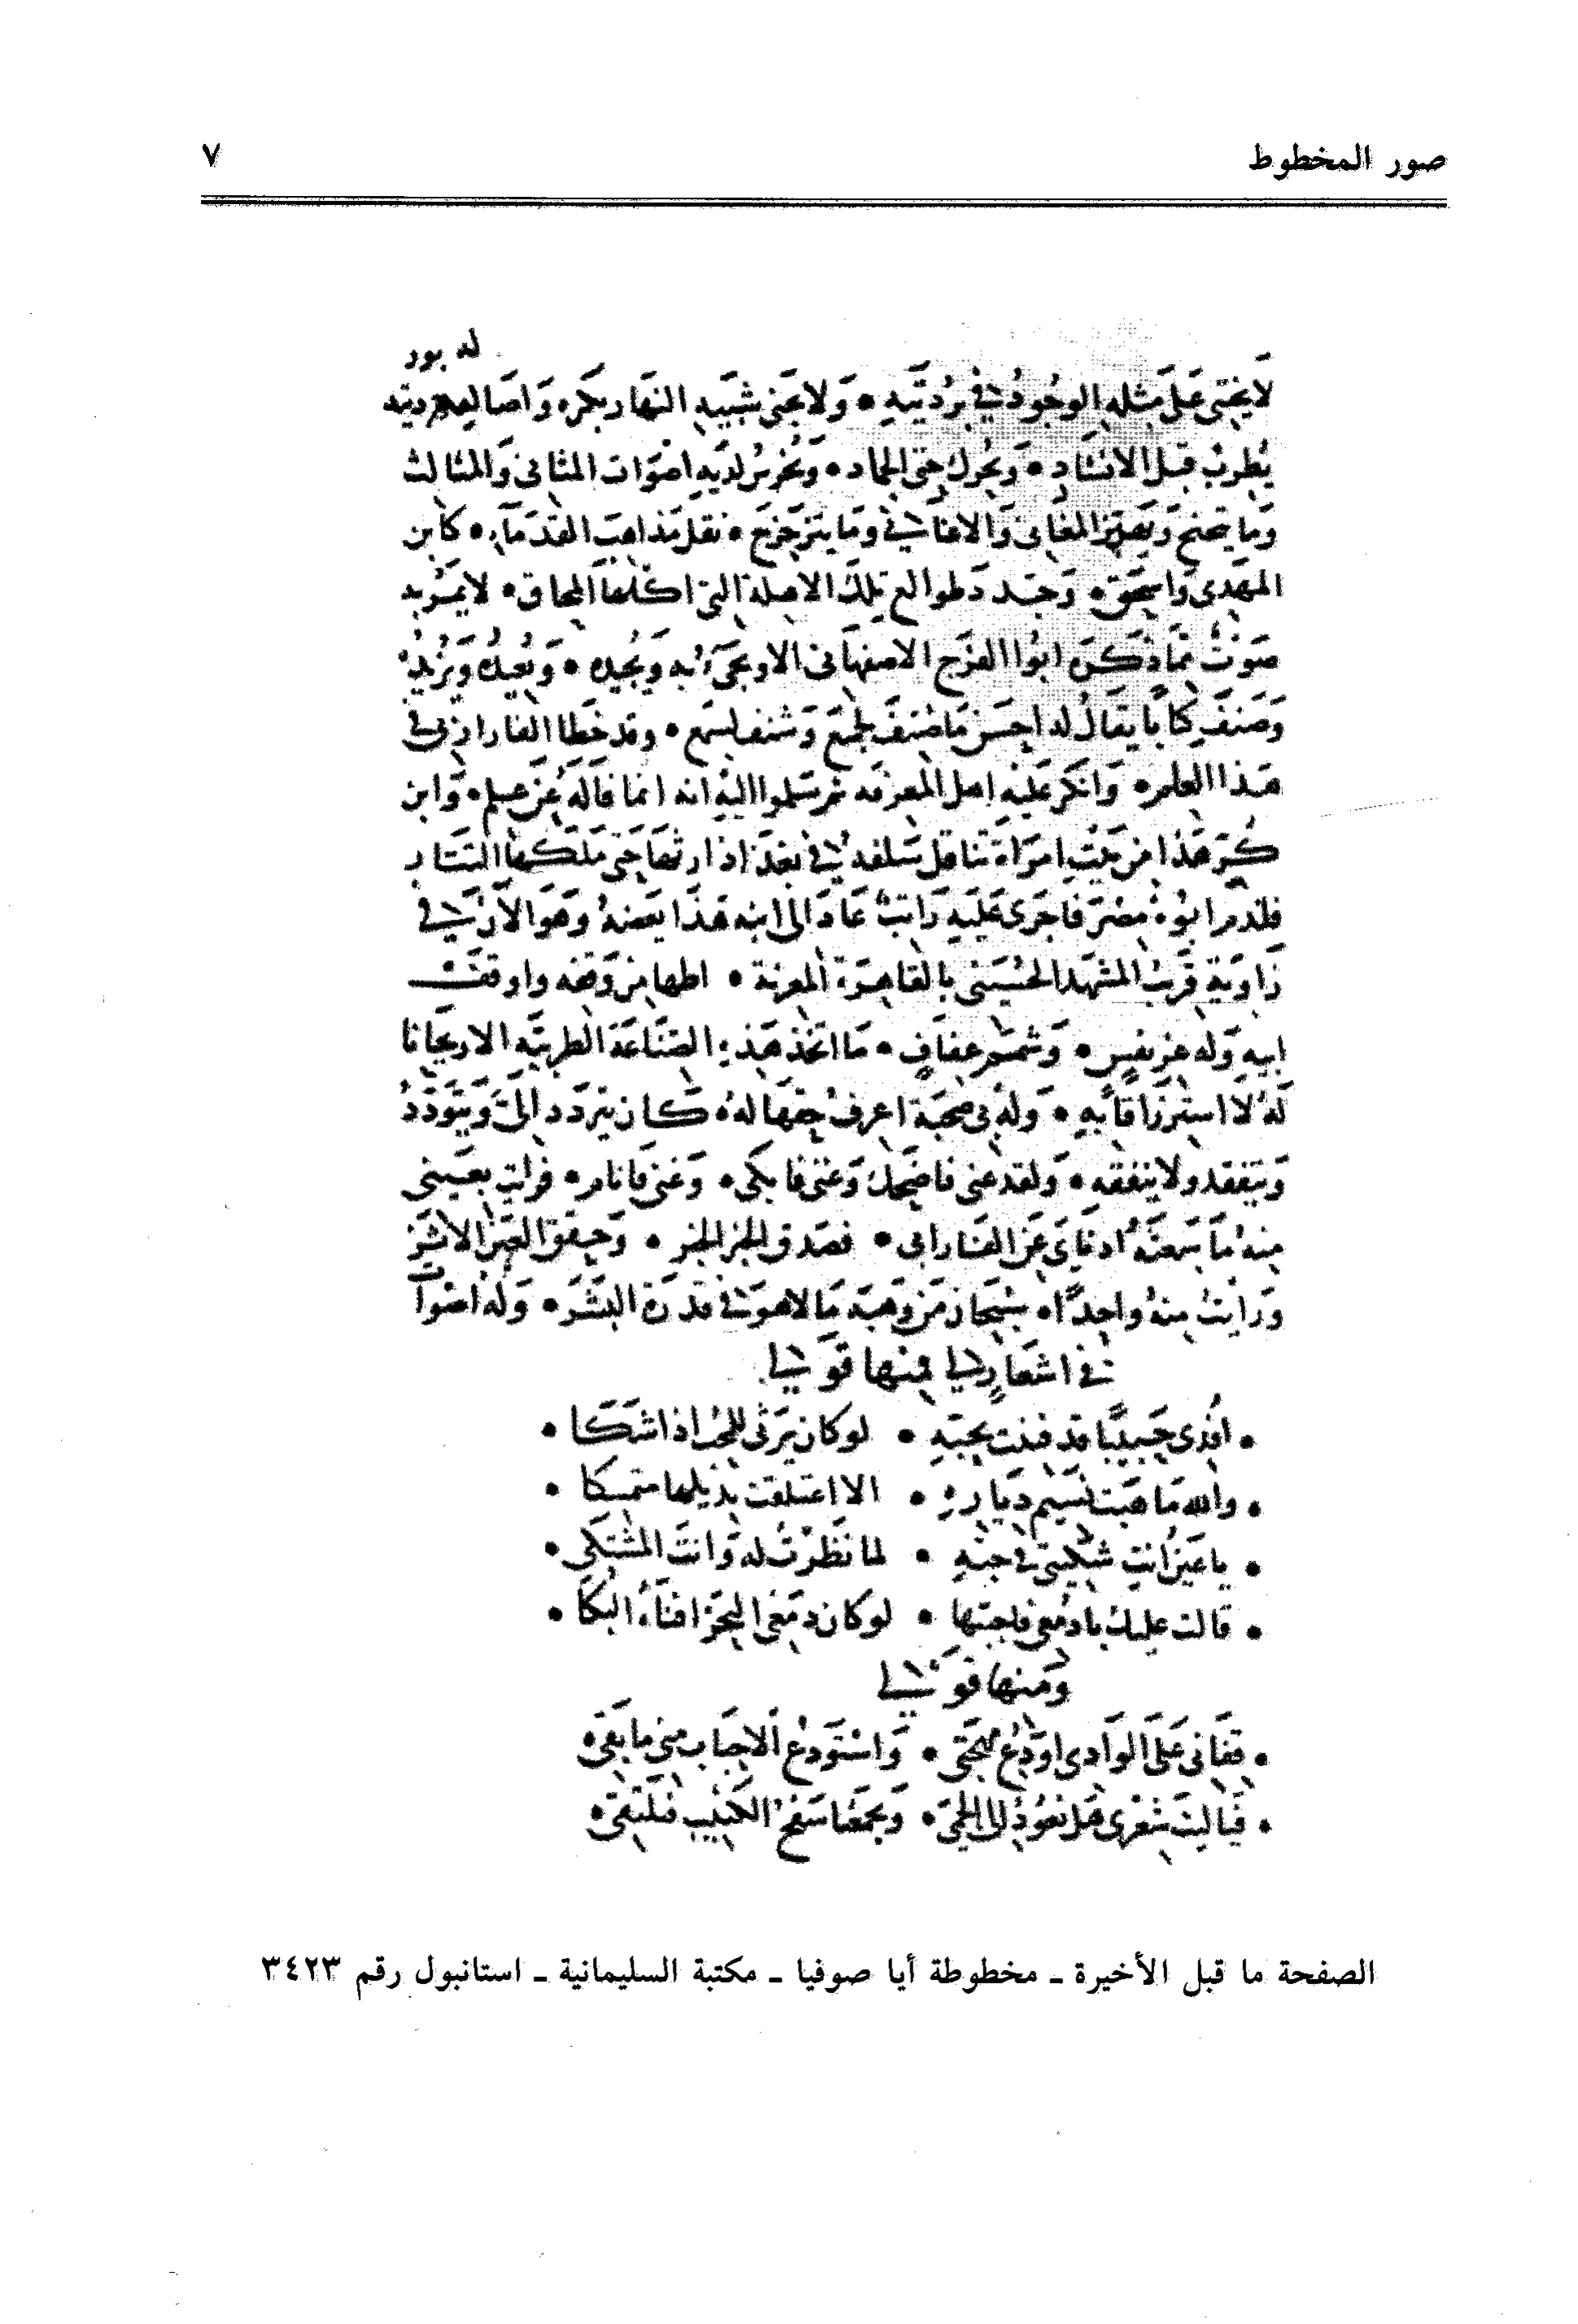 صور المخطوط
٧
له بور
لا يختبى على مثله الوجود في بردتيه • ولا يجنى شبيه النهار بكره واصاله
يطرب قبل الانشاد • ويحرك حتى الجماد • ويخرس لديه اصوات المثانى والمثالث
وما يتحنح ويهتز المغانى والاغاني وما يتزحزح • نقل مذاهب القدماء • كابن
المهدى واسحق • وجدد طوالع تلك الاهلة التى اكلها المحاق • لا يمر به
صوت مما ذكره ابوا الفرج الاصفهانى الا ويجىء به ويجيده • ويعيده ويزيده
وصنف كتابا يقال له احسن ما صنف لجمع وشنف لسمع • وقد خطا الفارابى فى
هذا العلم • وانكر عليه اهل المعرفه ثم سلموا اليه انه انما قاله عن علم • وابن
كر هذا من حيث امراة تناقل سلفه في بغداد ارثها حتى ملكها التتار
فقدم ابوه مصر فاجرى عليه راتب عاد الى ابنه هذا بعضه وهو الآن في
زاوية قرب المشهد الحسينى بالقاهرة المعزية • اظنها من وقفه او وقف
ابيه وله عز نفس • وشمم عفاف • ما اتخذ هذه الصناعة الطربيه الا ريحانا
له لا استرزاقا به • وله بى صحبة اعرف حقها له • كان يتردد الى ويتودد
ويتفقد ولا ينفقه • ولقد غنى فاضحك وغنى فابكى • وغنى فانام • فرايت بعينى
منه ما سمعته اذناى عن الفارابى • فصدق الخبر الخبر • وحقق العين الاثر
ورايت منه واحدا • سبحان من وهبه ما لا هو في قدرة البشر • وله اصوات
في اشعار لي فمنها قولي
• افدى حبيبا قد فنيت بحبه • لو كان يرثى للمحب اذا شكا •
• والله ما هبت نسيم دياره • الا اعتلقت بذيلها متمسكا •
• يا عين انت شكيتى في حبه • لما نظرت له وانت المشتكى •
• قالت عليك بادمعى فاجبتها • لو كان دمعى البحر افناه البكا •
ومنها قولي
• قفا بى على الوادى اودع مهجتى • واستودع الاحباب منى ما بقى •
• فيا ليت شعرى هل نعود الى الحمى • ويجمعنا سفح الكثيب فنلتقى •
الصفحة ما قبل الأخيرة ـ مخطوطة أيا صوفيا ـ مكتبة السليمانية ـ استانبول رقم ٣٤٢٣